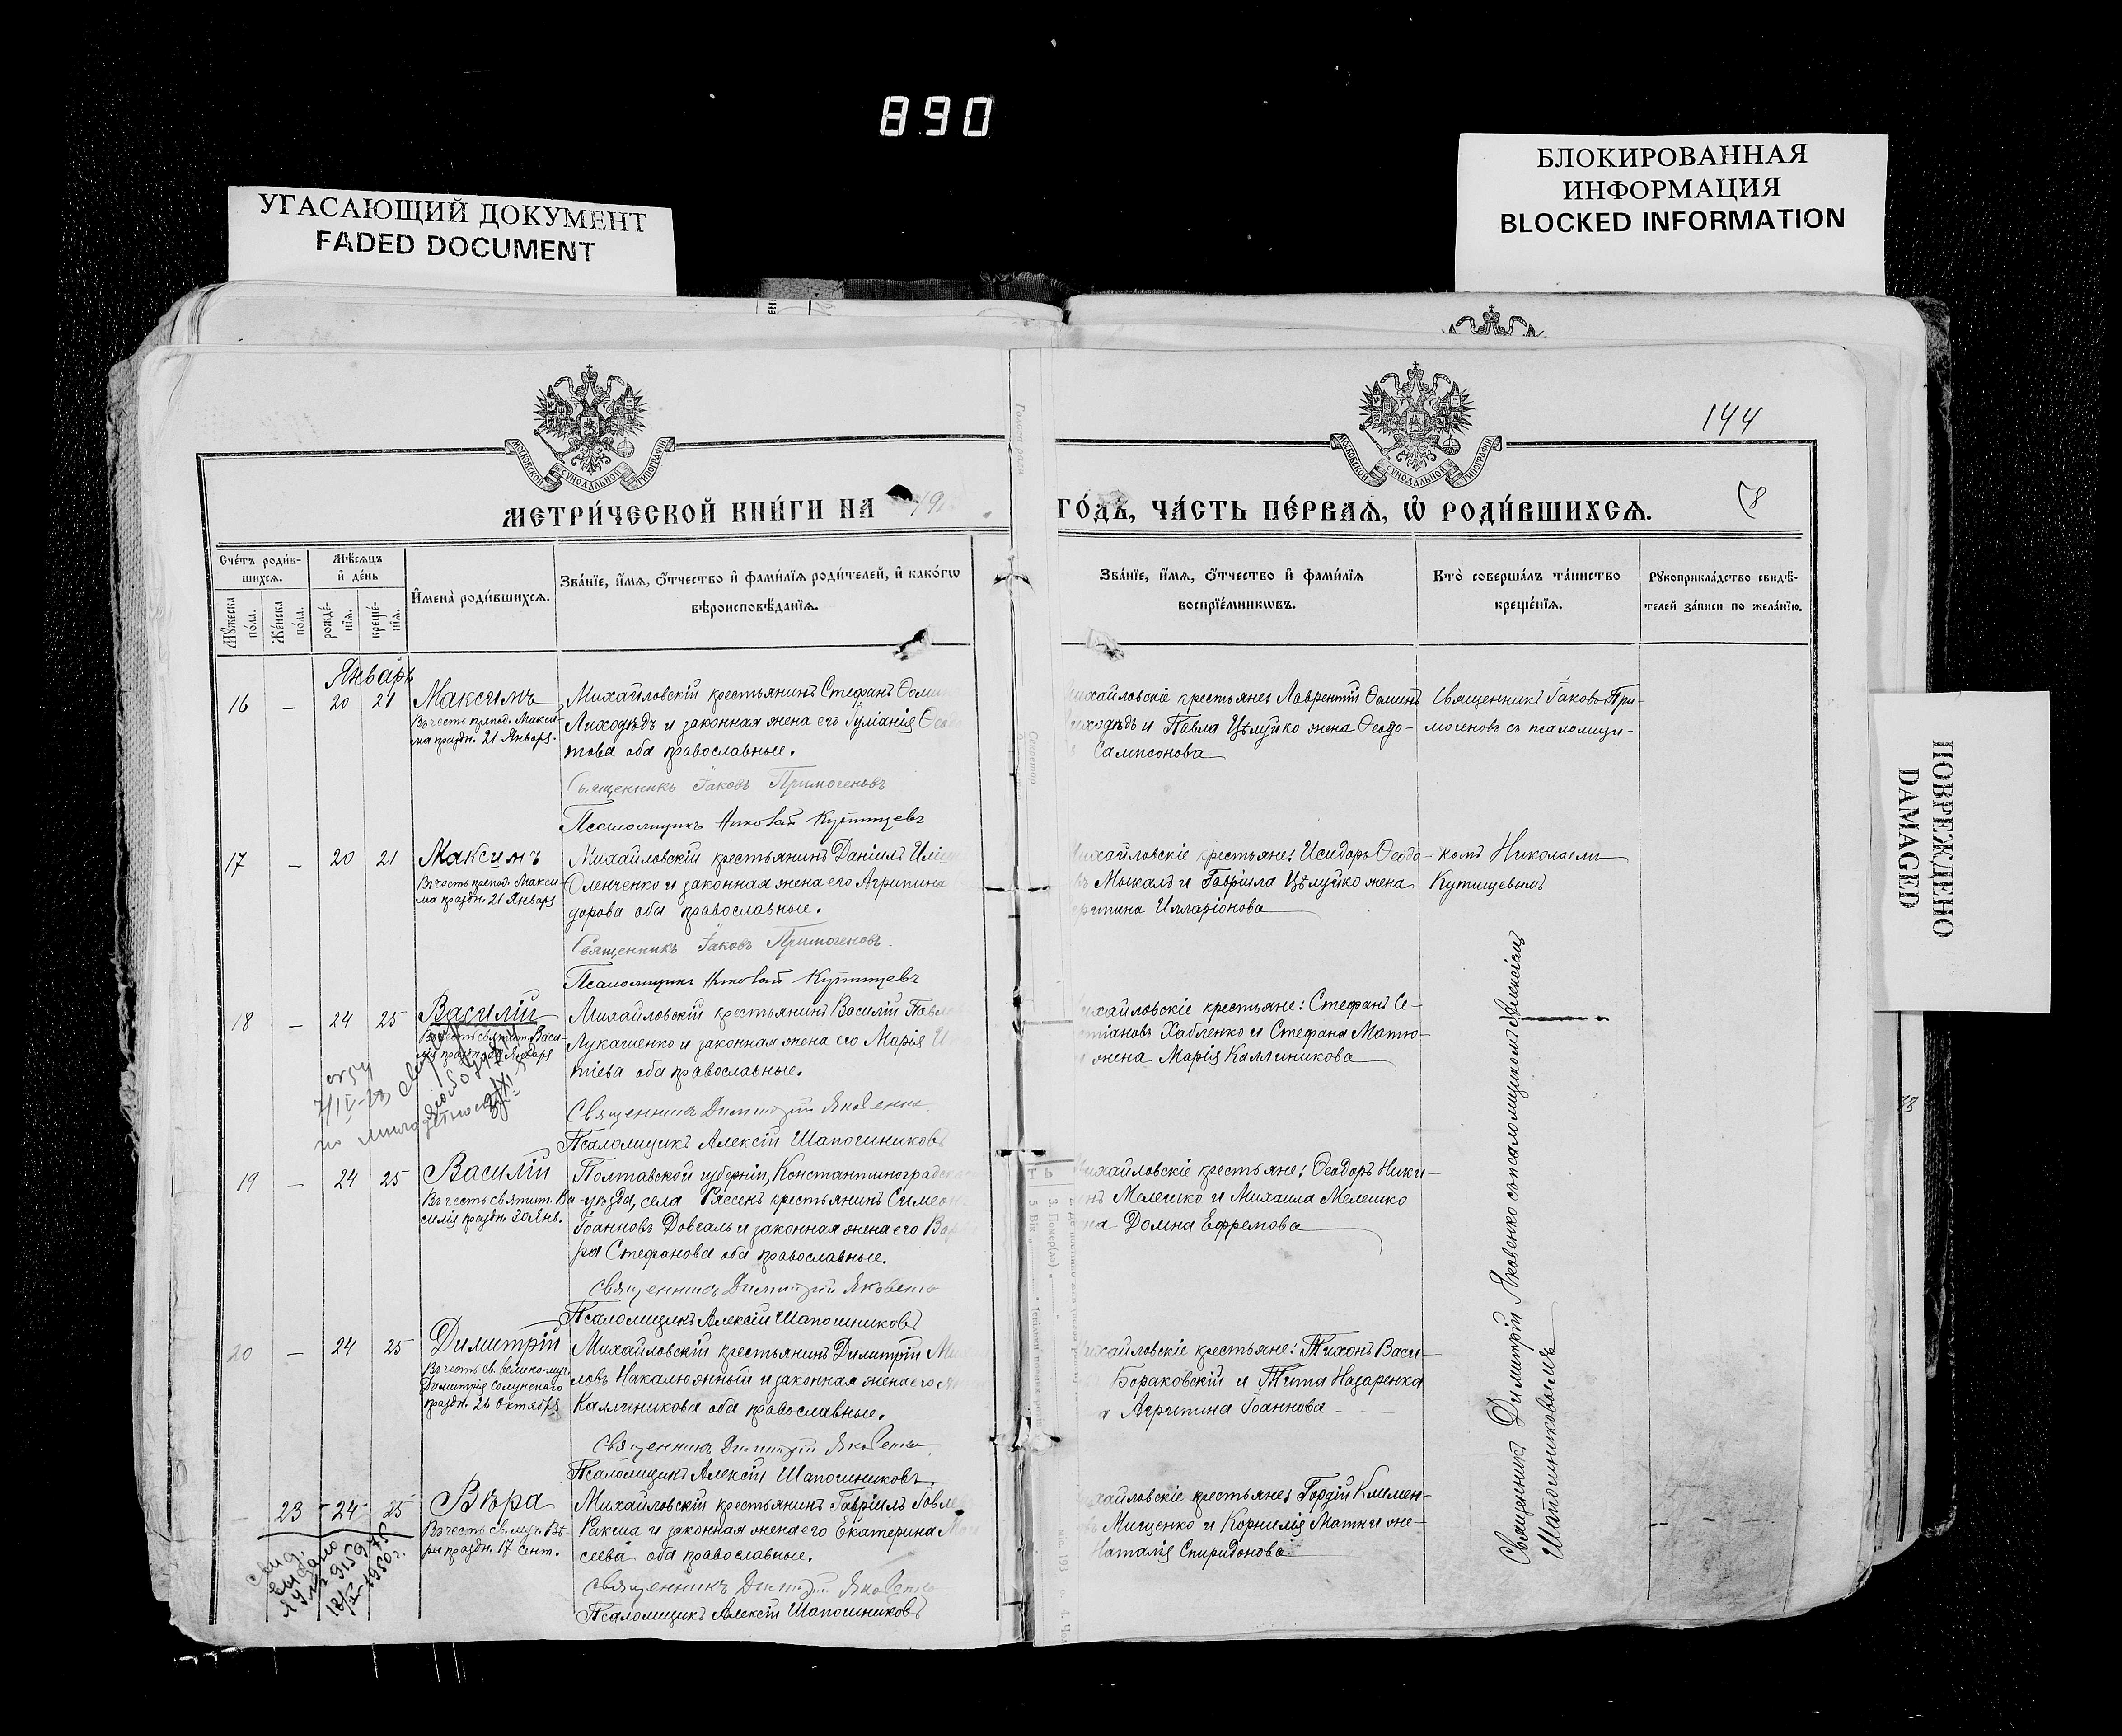 890
УГАСАЮЩИЙ ДОКУМЕНТ
FADED DOCUMENT
БЛОКИРОВАННАЯ
ИНФОРМАЦИЯ
BLOCKED INFORMATION
ПОВРЕЖДЕНО
DAMAGED
144
МОСКОВСКОЙ СѴНОДАЛЬНОЙ ТИПОГРАФІИ
МОСКОВСКОЙ СѴНОДАЛЬНОЙ ТИПОГРАФІИ
МЕТРИ́ЧЕСКОЙ КНИ́ГИ НА 19
ГО́ДЪ, ЧА́СТЬ ПЕ́РВАѦ, Ѡ҆ РОДИ́ВШИХСѦ.
Сче́тъ роди́в-
шихсѧ.
Мѣ́сѧцъ
и҆ де́нь
Мꙋ́жеска
по́ла.
Же́нска
по́ла.
рожде́-
нїѧ.
креще́-
нїѧ.
И҆мена̀ роди́вшихсѧ.
Зва́нїе, и҆́мѧ, ѻ҆́тчество и҆ фами́лїѧ роди́телей, и҆ како́гѡ
вѣроисповѣ́данїѧ.
Зва́нїе, и҆́мѧ, ѻ҆́тчество и҆ фами́лїѧ
воспрїе́мникѡвъ.
Кто̀ соверша́лъ та́инство
креще́нїѧ.
Рꙋкоприкла́дство свидѣ́-
телей за́писи по жела́нїю.
Январь
16 — 20 21 Максимъ
Въ честь препод. Макси-
ма праздн. 21 Января.
Михайловскій крестьянинъ Стефанъ
Лиходѣдъ и законная жена его Іуліанія
това оба православные.
Священникъ Іаковъ Примогеновъ
Псаломщикъ Николай Кутищевъ
ихайловскіе крестьяне: Лаврентій Ѳоминъ
иходѣдъ и Павла Цѣлуйко жена Ѳеодо-
Сампсонова
Священникъ Іаковъ При-
могеновъ съ псаломщи-
17 — 20 21 Максимъ
Въ честь препод. Макси-
ма праздн. 21 Января
Михайловскій крестьянинъ Даніилъ
Оленченко и законная жена его Агрипина
дорова оба православные.
Священникъ Іаковъ Примогеновъ.
Псаломщикъ Николай Кутищевъ
ихайловскіе крестьяне: Исидоръ Ѳеодо-
въ Мыкалъ и Гавріила Цѣлуйко жена
рипина Илларіонова
комъ Николаемъ
Кутищевымъ
18 — 24 25 Василій
Михайловскій крестьянинъ Василій Павло
Лукашенко и законная жена его Марія И
тіева оба православные.
Священникъ Димитрій Яковенко
Псаломщикъ Алексій Шапошниковъ
ихайловскіе крестьяне: Стефанъ Се-
стіановъ Хабленко и Стефана Матю-
жена Марія Каллиникова
19 — 24 25 Василій
Въ честь святит. Ва-
силія праздн. 30 Янв.
Полтавской губерніи, Константиноградска
уѣзда, села Рясскъ крестьянинъ Симеонъ
Іоанновъ Довгаль и законная жена его Вар
ра Стефанова оба православные.
Священникъ Димитрій Яковенко
Псаломщикъ Алексій Шапошниковъ
ихайловскіе крестьяне: Ѳеодоръ Ники-
нъ Мелешко и Михаила Мелешко
на Домна Ефремова
20 — 24 25 Димитрій
Въ честь св. великомуч.
Димитрія Солунскаго
праздн. 26 Октября
Михайловскій крестьянинъ Димитрій
ловъ Накалюжный и законная жена его
Каллиникова оба православные.
Священникъ Димитрій Яковенко
Псаломщикъ Алексій Шапошниковъ.
ихайловскіе крестьяне: Тихонъ Васи-
Бораковскій и Тита Назаренка
а Агрипина Іоаннова
— 23 24 25 Вѣра
Въ честь св. муч. Вѣ-
ры праздн. 17 Сент.
Михайловскій крестьянинъ Гавріилъ
Ракша и законная жена его Екатерина
сеева оба православные.
Священникъ Димитрій Яковенко
Псаломщикъ Алексій Шапошниковъ
хайловскіе крестьяне: Гордій Климен-
Мищенко и Корнилія Матни же-
Наталія Спиридонова
Священникъ Димитрій Яковенко съ псаломщикомъ Алексіемъ
Шапошниковымъ